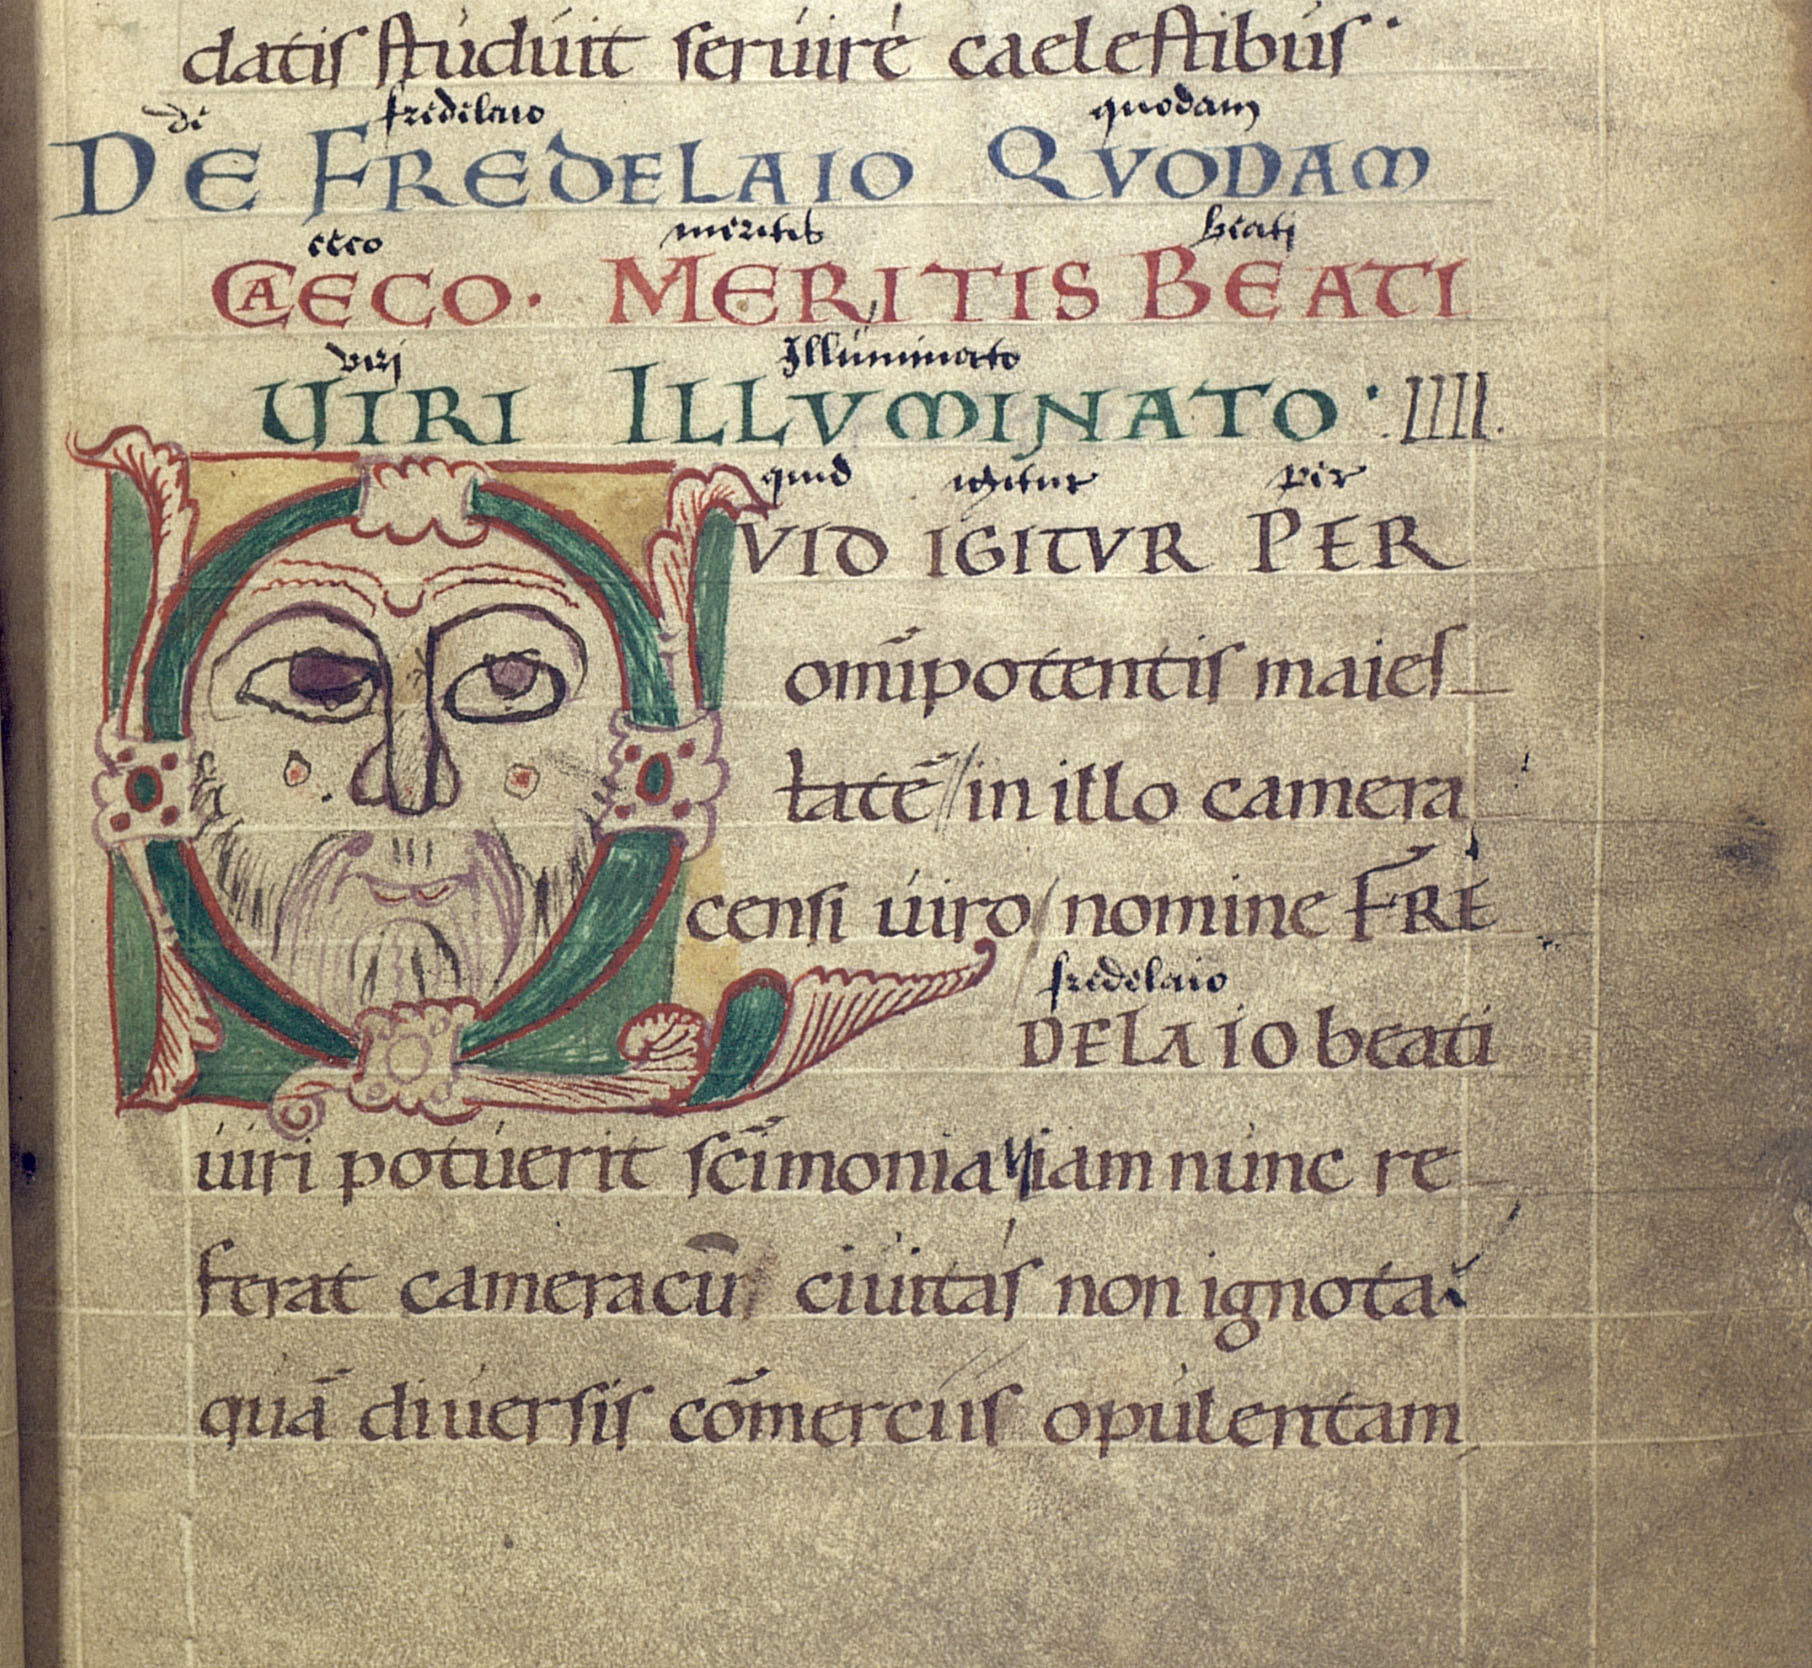 datis studuit seruire caelestibus·
de fredelaio quodam
DE FREDELAIO QVODAM
ceco meritis beati
CAECO· MERITIS BEATI
viri Illuminato
UIRI ILLVMINATO· IIII.
quid igitur per
VID IGITVR PER
om̄ipotentis maies
tatē in illo camera
censi uiro nomine FRE
fredelaio
DELAIO beati
uiri potuerit sc̄imonia iam nunc re
ferat cameracū ciuitas non ignota
quā diuersis cōmerciis opulentam